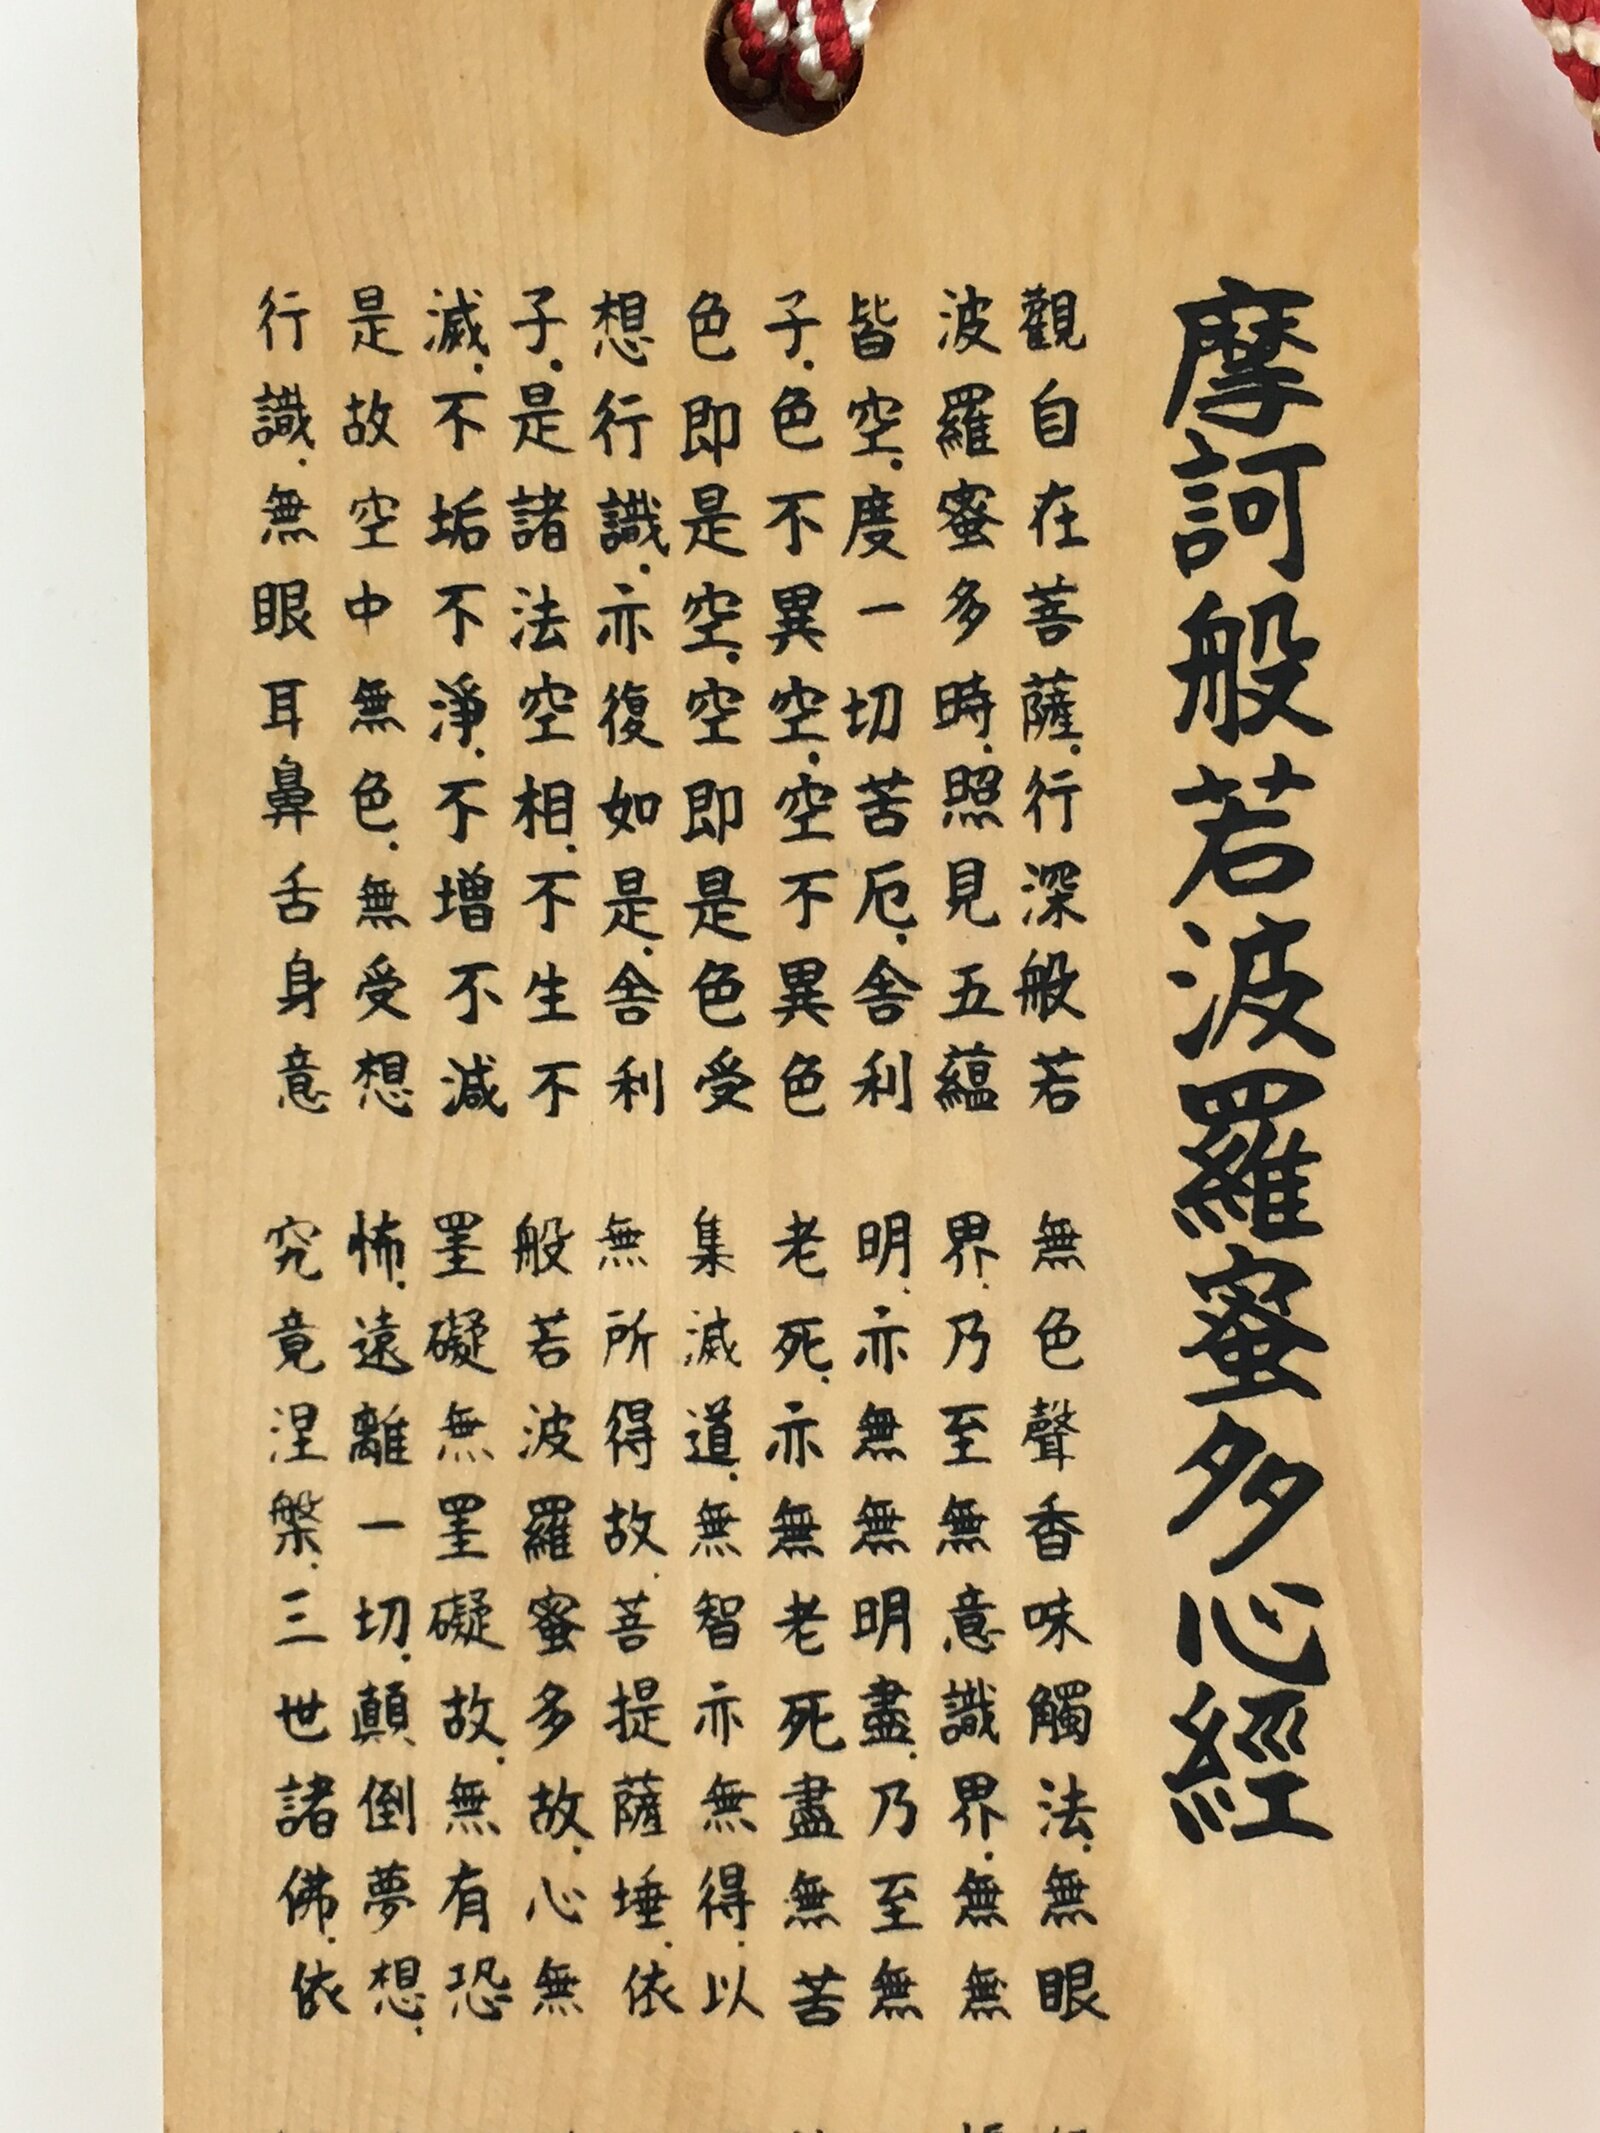 摩訶般若波羅蜜多心經
觀自在菩薩.行深般若
波羅蜜多時.照見五蘊
皆空.度一切苦厄.舍利
子.色不異空.空不異色
色即是空.空即是色受
想行識.亦復如是.舍利
子.是諸法空相.不生不
滅.不垢不淨.不增不減
是故空中無色.無受想
行識.無眼耳鼻舌身意
無色聲香味觸法.無眼
界.乃至無意識界.無無
明.亦無無明盡.乃至無
老死.亦無老死盡無苦
集滅道.無智亦無得.以
無所得故.菩提薩埵.依
般若波羅蜜多故.心無
罣礙無罣礙故.無有恐
怖.遠離一切.顛倒夢想.
究竟涅槃.三世諸佛.依